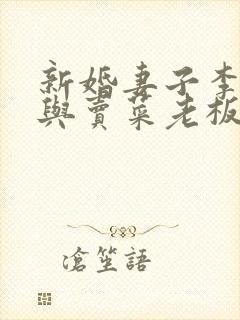 新婚妻子李
與賣菜老板
滄笙語